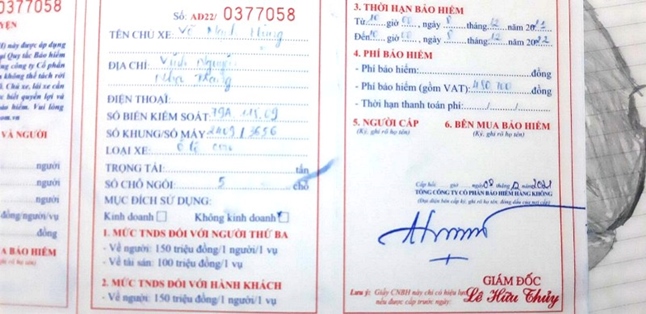 0377058
này được áp dụng
Quy tắc Bảo hiểm
công ty Cổ phần
không thể tách rời
Chủ xe, lái xe cần
biết quyền lợi và
bảo hiểm. Vui lòng
VÀ NGƯỜI
người
người
đồng/người/vụ
đồng
BẢO HIỂM
Số: AD22/ 0377058
TÊN CHỦ XE:
ĐỊA CHỈ: Vĩnh Nguyên
Nha Trang
ĐIỆN THOẠI:
SỐ BIỂN KIỂM SOÁT: 79A
SỐ KHUNG/SỐ MÁY:
LOẠI XE: Ô tô con
TRỌNG TẢI: tấn
SỐ CHỖ NGỒI: 5 chỗ
MỤC ĐÍCH SỬ DỤNG:
Kinh doanh Không kinh doanh
1. MỨC TNDS ĐỐI VỚI NGƯỜI THỨ BA
- Về người: 150 triệu đồng/1 người/1 vụ
- Về tài sản: 100 triệu đồng/1 vụ
2. MỨC TNDS ĐỐI VỚI HÀNH KHÁCH
- Về người: 150 triệu đồng/1 người/1 vụ
3. THỜI HẠN BẢO HIỂM
Từ giờ ngày 8 tháng 12 năm 20
Đến giờ ngày 8 tháng 12 năm 20
4. PHÍ BẢO HIỂM
- Phí bảo hiểm: đồng
- Phí bảo hiểm (gồm VAT): đồng
- Thời hạn thanh toán phí: / /
5. NGƯỜI CẤP 6. BÊN MUA BẢO HIỂM
(Ký, ghi rõ họ tên) (Ký, ghi rõ họ tên)
Cấp hồi giờ ngày 08 tháng 12 năm 2021
TỔNG CÔNG TY CỔ PHẦN BẢO HIỂM HÀNG KHÔNG
GIÁM ĐỐC
Lê Hữu Thủy
Lưu ý: Giấy CNBH này chỉ có hiệu lực
nếu được cấp trước ngày: